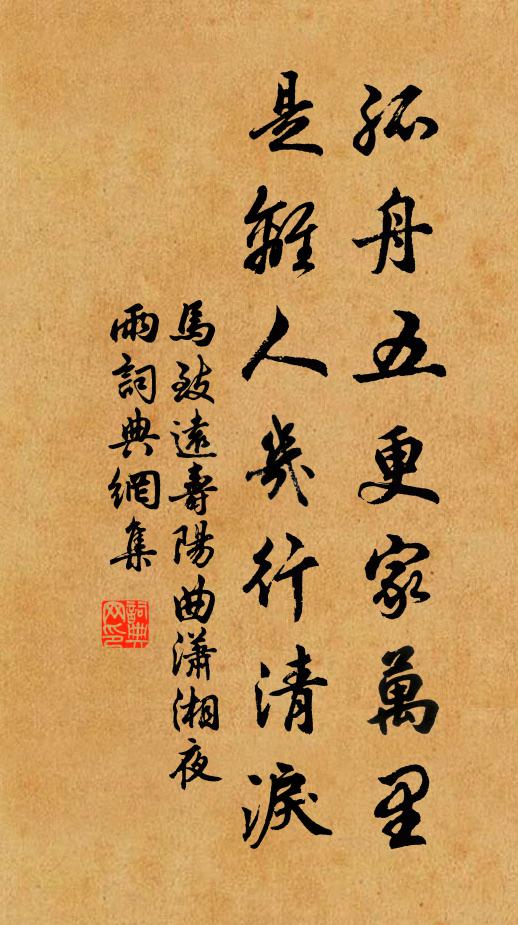 孤舟五更家萬里
是離人幾行清淚
馬致遠壽陽曲瀟湘夜
雨詞典網集
詞典
网印